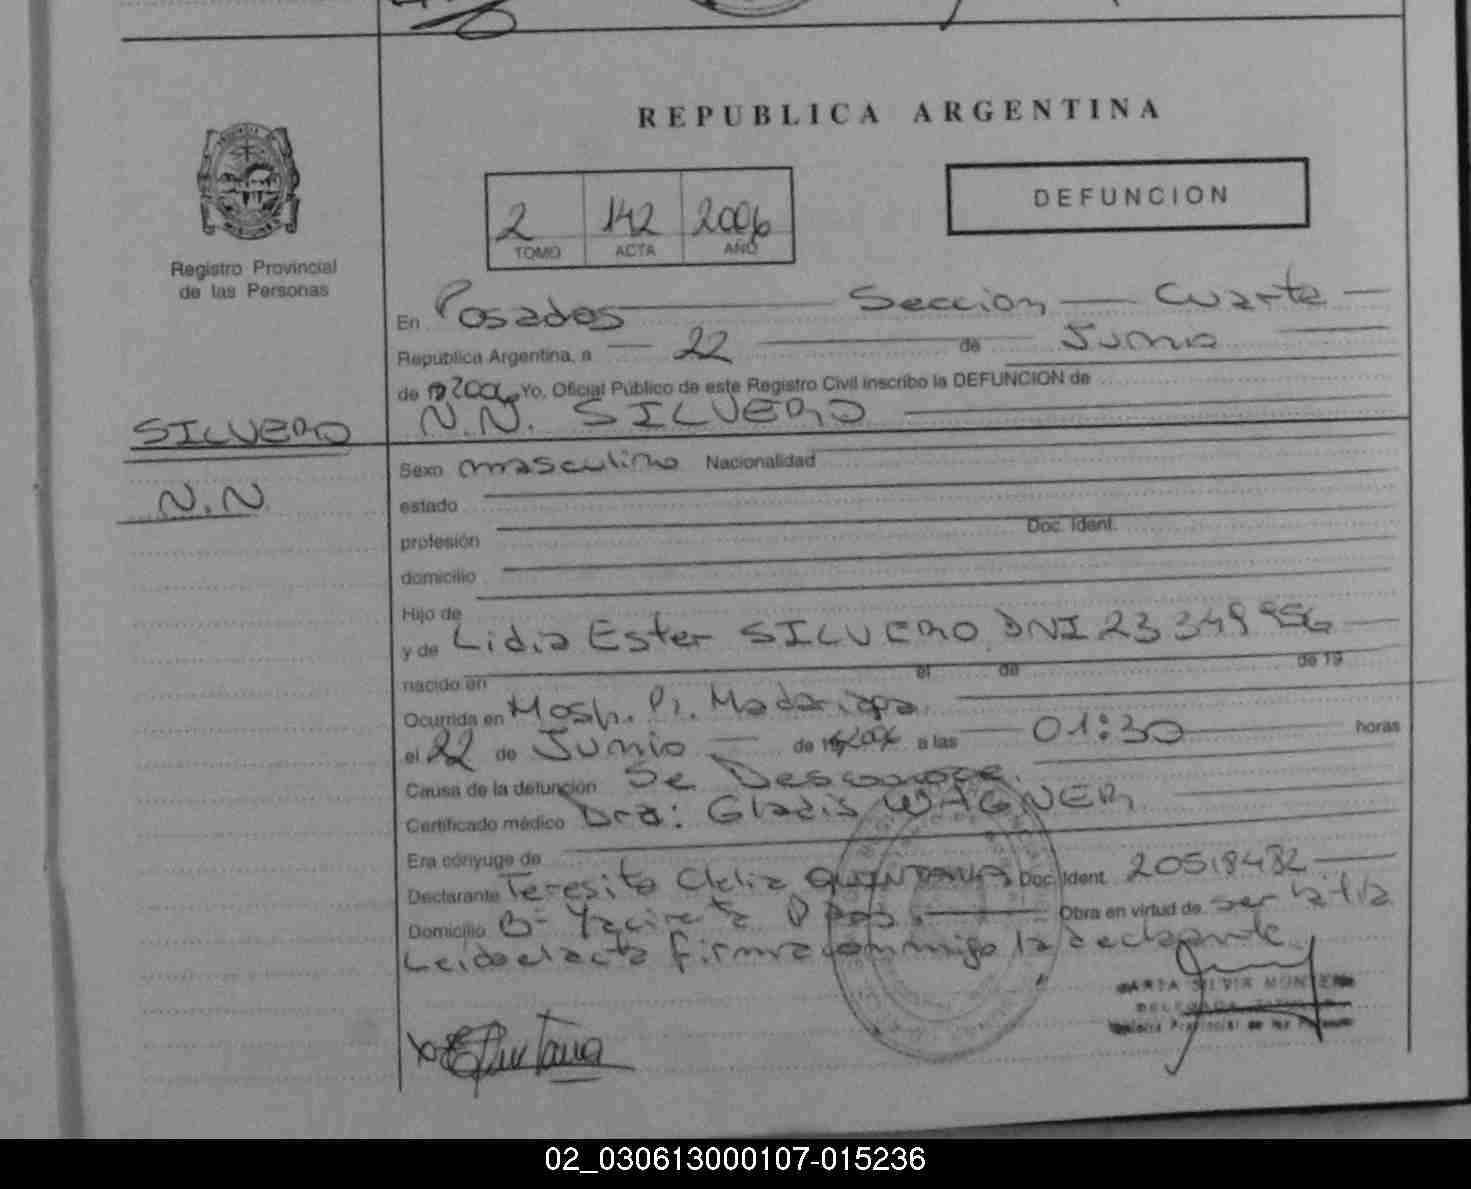 REPUBLICA ARGENTINA
2 142 2006
TOMO ACTA AÑO
DEFUNCION
Registro Provincial
de las Personas
En Posadas Seccion Cuarta
República Argentina, a 22 de Junio
de 2006 Yo, Oficial Público de este Registro Civil inscribo la DEFUNCION de
N.N. SILVERO
SILVERO
N.N
Sexo masculino Nacionalidad
estado
profesión Doc. Ident.
domicilio
Hijo de
y de Lidia Ester SILVERO DNI 23 349 956
nacido en el de de 19
Ocurrida en Hosp. Dr. Madariaga
el 22 de Junio de 2006 a las 01:30 horas
Causa de la defunción Se Desconoce.
Certificado médico Dra: Gladis WAGNER
Era cónyuge de
Declarante Teresita Clelia QUINTANA Doc. Ident. 20518482
Domicilio Bº Yacireta Pdas. Obra en virtud de ser la tia
Leida el acta firma conmigo la declarante.
Quintana
MONTE
DELEGADA TITULAR
Provincial de las Personas
02_030613000107-015236